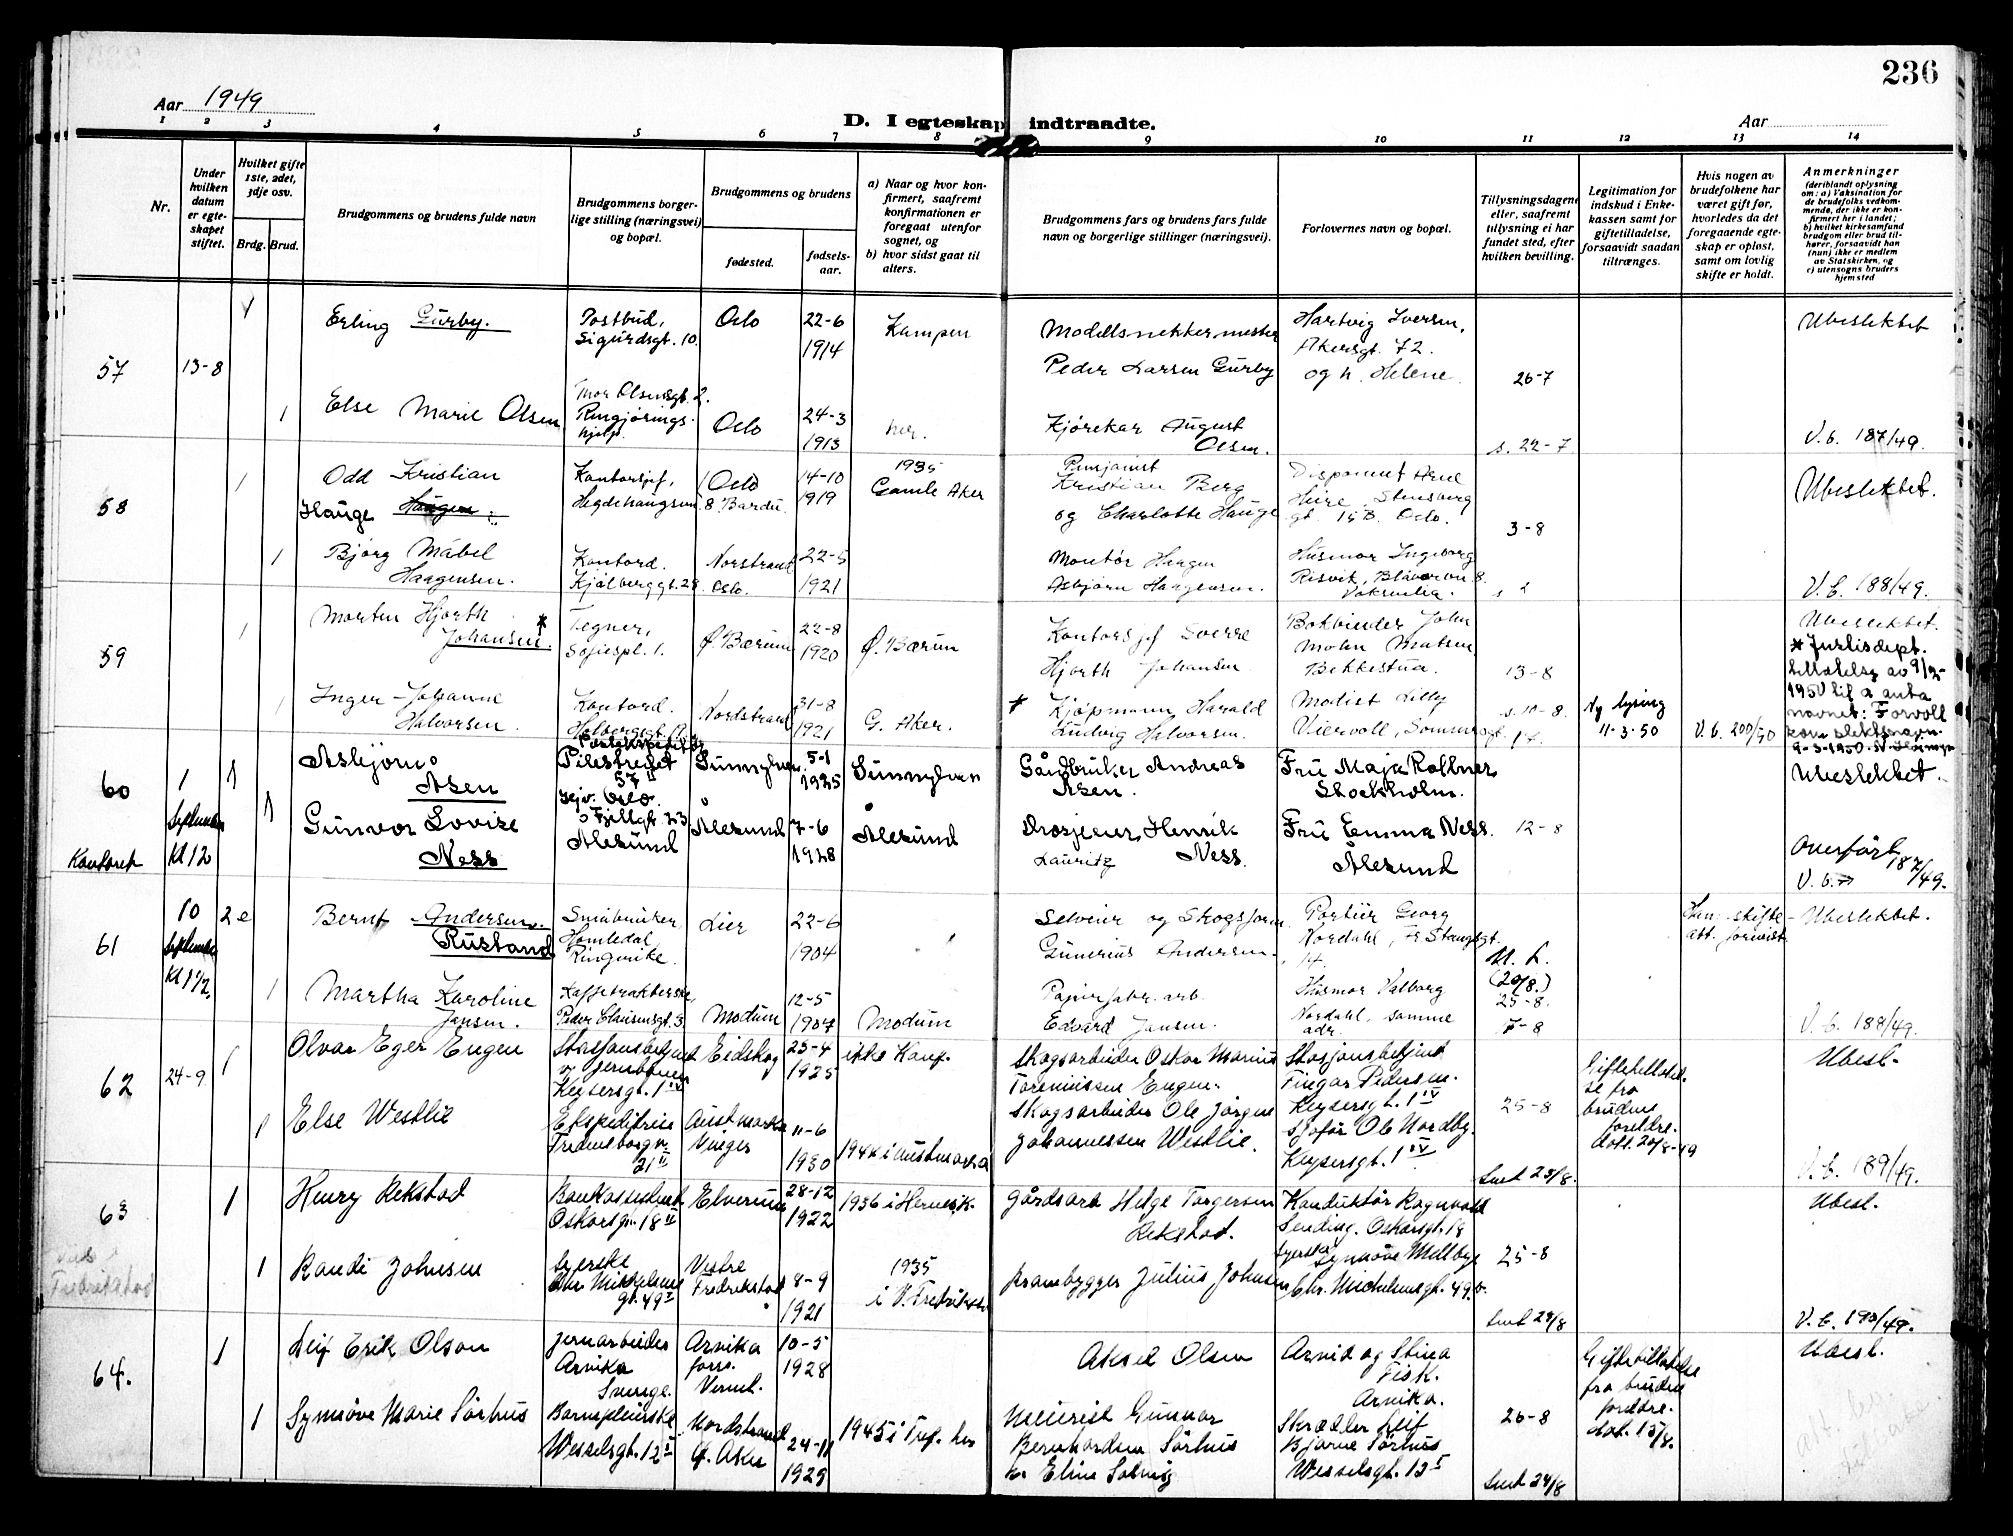 236
Aar 1949
D. I egteskap indtraadte.
Aar
1 2 3 4 5 6 7 8 9 10 11 12 13 14
Nr.
Under hvilken datum er egteskapet stiftet.
Hvilket gifte 1ste, 2det, 3dje osv.
Brdg. Brud.
Brudgommens og brudens fulde navn
Brudgommens borgerlige stilling (næringsvei) og bopæl.
Brudgommens og brudens
fødested.
fødselsaar.
a) Naar og hvor konfirmert, saafremt konfirmationen er foregaat utenfor sognet, og
b) hvor sidst gaat til alters.
Brudgommens fars og brudens fars fulde navn og borgerlige stillinger (næringsvei).
Forlovernes navn og bopæl.
Tillysningsdagene eller, saafremt tillysning ei har fundet sted, efter hvilken bevilling.
Legitimation for indskud i Enkekassen samt for giftetilladelse, forsaavidt saadan tiltrænges.
Hvis nogen av brudefolkene har været gift før, hvorledes da det foregaaende egteskap er opløst, samt om lovlig skifte er holdt.
Anmerkninger
(deriblandt oplysning om: a) Vaksination for de brudefolks vedkommende, der ikke er konfirmert her i landet; b) hvilket kirkesamfund brudgom eller brud tilhører, forsaavidt han (hun) ikke er medlem av Statskirken, og c) utensogns bruders hjemsted
57
13-8
Erling Gurby.
Postbud,
Sigurdsgt. 10.
Oslo
22-6
1914
Kampen
Modellsnekkermester
Peder Larsen Gurby
Hartvig Iversen,
Akersgt. 72.
og h. Helene.
26-7
Ubeslektet
1
Else Marie Olsen
Thor Olsensgt. 2.
Rengjørings-
hjelp.
Oslo
24-3
1913
her.
Kjørekar August
Olsen.
s. 22-7
V.b. 187/49.
58
1
Odd Kristian
Hauge Haugen
Kontorsjef,
Hegdehaugsvn
Oslo
8 Bardu.
14-10
1919
1935
Gamle Aker
Kristian Berg
og Charlotte Hauge
Stensberg
gt. 19B. Oslo.
3-8
Ubeslektet.
1
Bjørg Mabel
Haagensen.
Kontord.
Kjølberggt. 28.
Norstrand
Oslo.
22-5
1921
Montør Haagen
Asbjørn Haagensen.
Husmor Ingeborg
Risvik,
V.b. 188/49.
59
1
Morten Hjorth
Johansen. *
Tegner,
Sofiespl. 1.
Ø. Bærum
22-8
1920
Ø. Bærum
Kontorsjef Sverre
Hjorth Johansen
Bokbinder John
Mohn
Bekkestua.
13-8
Ubeslektet.
* Justisdept.
tillatelse av 9/2-
1950 til å anta
navnet: Forvoll
som slektsnavn.
9-3-1950.
1
Inger-Johanne
Halvorsen.
Kontord.
Nordstrand
31-8
1921
G. Aker.
* Kjøpmann Harald
Ludvig Halvorsen.
Modist Lilly
Viervoll,
s. 10-8.
Ny lysing
11-3.50
V.b. 200/50
60
Kontoret
1
September
kl 12
1
Asbjørn
Åsen
Pilestredet
57 II
Oslo.
Sunnylven
5-1
1925
Sunnylven
Gårdbruker Andreas
Åsen.
Fru Maja Rollner
Stockholm.
Ubeslektet.
1
Gunvor Lovise
Ness
Fjellgt. 23
Ålesund
Ålesund
7-6
1928
Ålesund
Drosjeeier Henrik
Lauritz Ness.
Fru Emma Ness.
Ålesund
12-8
Overført
V.b. 187/49.
61
10
September
kl 1 1/2.
2e
Bernt Andersen.
Rustand
Småbruker
Homledal
Ringerike.
Lier
22-6
1904
Selveier og Skogsform.
Gunerius Andersen.
Portier Georg
Nordahl, Fr. Stangsgt.
14.
U. L.
(20/8.)
25-8.
skifte-
att. forevist.
Ubeslektet.
1
Martha Karoline
Jansen.
Peder Clausensgt. 3.
Modum
12-5
1907
Modum
Papirfabr. arb.
Edvard Jansen.
Husmor Valborg
Nordahl, samme
adr.
7-8
V.b. 188/49.
62
24-9
1
Olvar Eger Engen
Stasjonsbetjent
v/ Jernbanen
Keysersgt. 1 IV
Eidskog
25-4
1925
ikke konf.
Skogsarbeider Oskar Marius
Toreniussen Engen.
Stasjonsbetjent
Fingar Pedersen.
Keysersgt. 1 IV
25-8
Giftetillatel-
se fra
brudens
foreldre.
dat. 20/8-49
Ubesl.
1
Else Westlie
Ekspeditrise
Fredensborgvn.
21 II
Austmarka
Vinger
11-6
1930
1944 i Austmarka
Skogsarbeider Ole Jørgen
Johannessen Westlie.
Sjåfør Ole Nordby.
Keysersgt. 1 IV
Sect 23/8.
V.b. 189/49.
63
Fredrikstad
1
Henry Rekstad
Bankassistent
Oskarsgt. 18 II
Elverum
28-12
1922
1936 i Hernes K.
Gårdsarb Helge Torgersen
Rekstad.
Konduktør Ragnvald
Sending. Oskarsgt. 18
25-8
Ubesl.
1
Randi Johnsen
Syerske
Chr. Mikkelsens
gt. 49 I
Vestre
Fredrikstad
8-9
1921
1935
i V. Fredrikstad
Brønnbygger Julius Johnsen
Syerske Synnøve Mellbye
Chr. Michelsensgt. 49.
Sect 24/8
V.b. 190/49.
64.
1
Leif Erik Olson
Jernarbeider
Arvika
Sverige.
Arvika
10-5
1928
Aksel Olsen
Arvid og Stina
Fisk.
Arvika.
26-8
Giftetillatelse
fra brudens
foreldre.
dat. 15/8.
Ubesl.
1
Synnøve Marie Sørhus
Barnepleierske
Wesselsgt. 12 I
Nordstrand
Ø. Aker
24-11
1929
1945 i Tref. her
Meierist Gunnar
Bernhardsen Sørhus
Skredder Leif
Bjarne Sørhus
Wesselsgt. 13 I
Sect 24/8